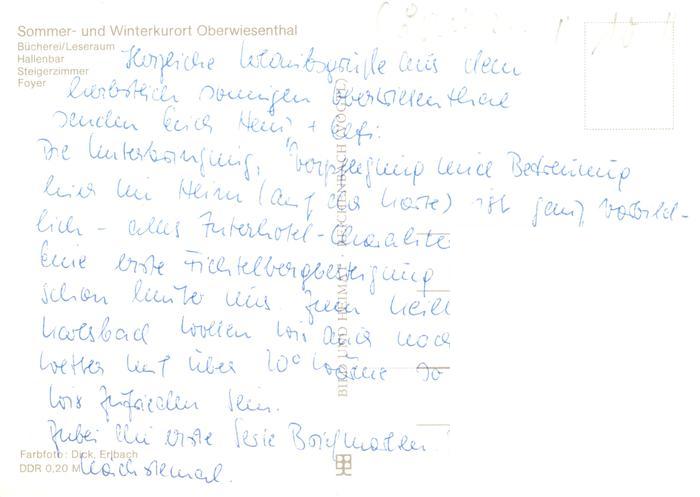 Sommer- und Winterkurort Oberwiesenthal
Bücherei/Leseraum
Hallenbar
Steigerzimmer
Foyer
Herzliche Urlaubsgrüße aus dem
herbstlich sonnigen Oberwiesenthal
senden Euch Heinz + Elfi.
Die Unterbringung, Verpflegung und Betreuung
hier im Heim (auf der Karte) ist ganz vorbild-
lich - alles Interhotel-Charakter
Eine erste Fichtelbergbesteigung
schon hinter uns. Zum
Karlsbad wollen wir auch noch
Wetter mit über 20° Wärme
wir zufrieden sein.
Zubei die erste Serie Briefmarken
Nächstemal.
Farbfoto: Dick, Erlbach
DDR 0,20 M
BILD UND HEIMAT · REICHENBACH (VOGTL)